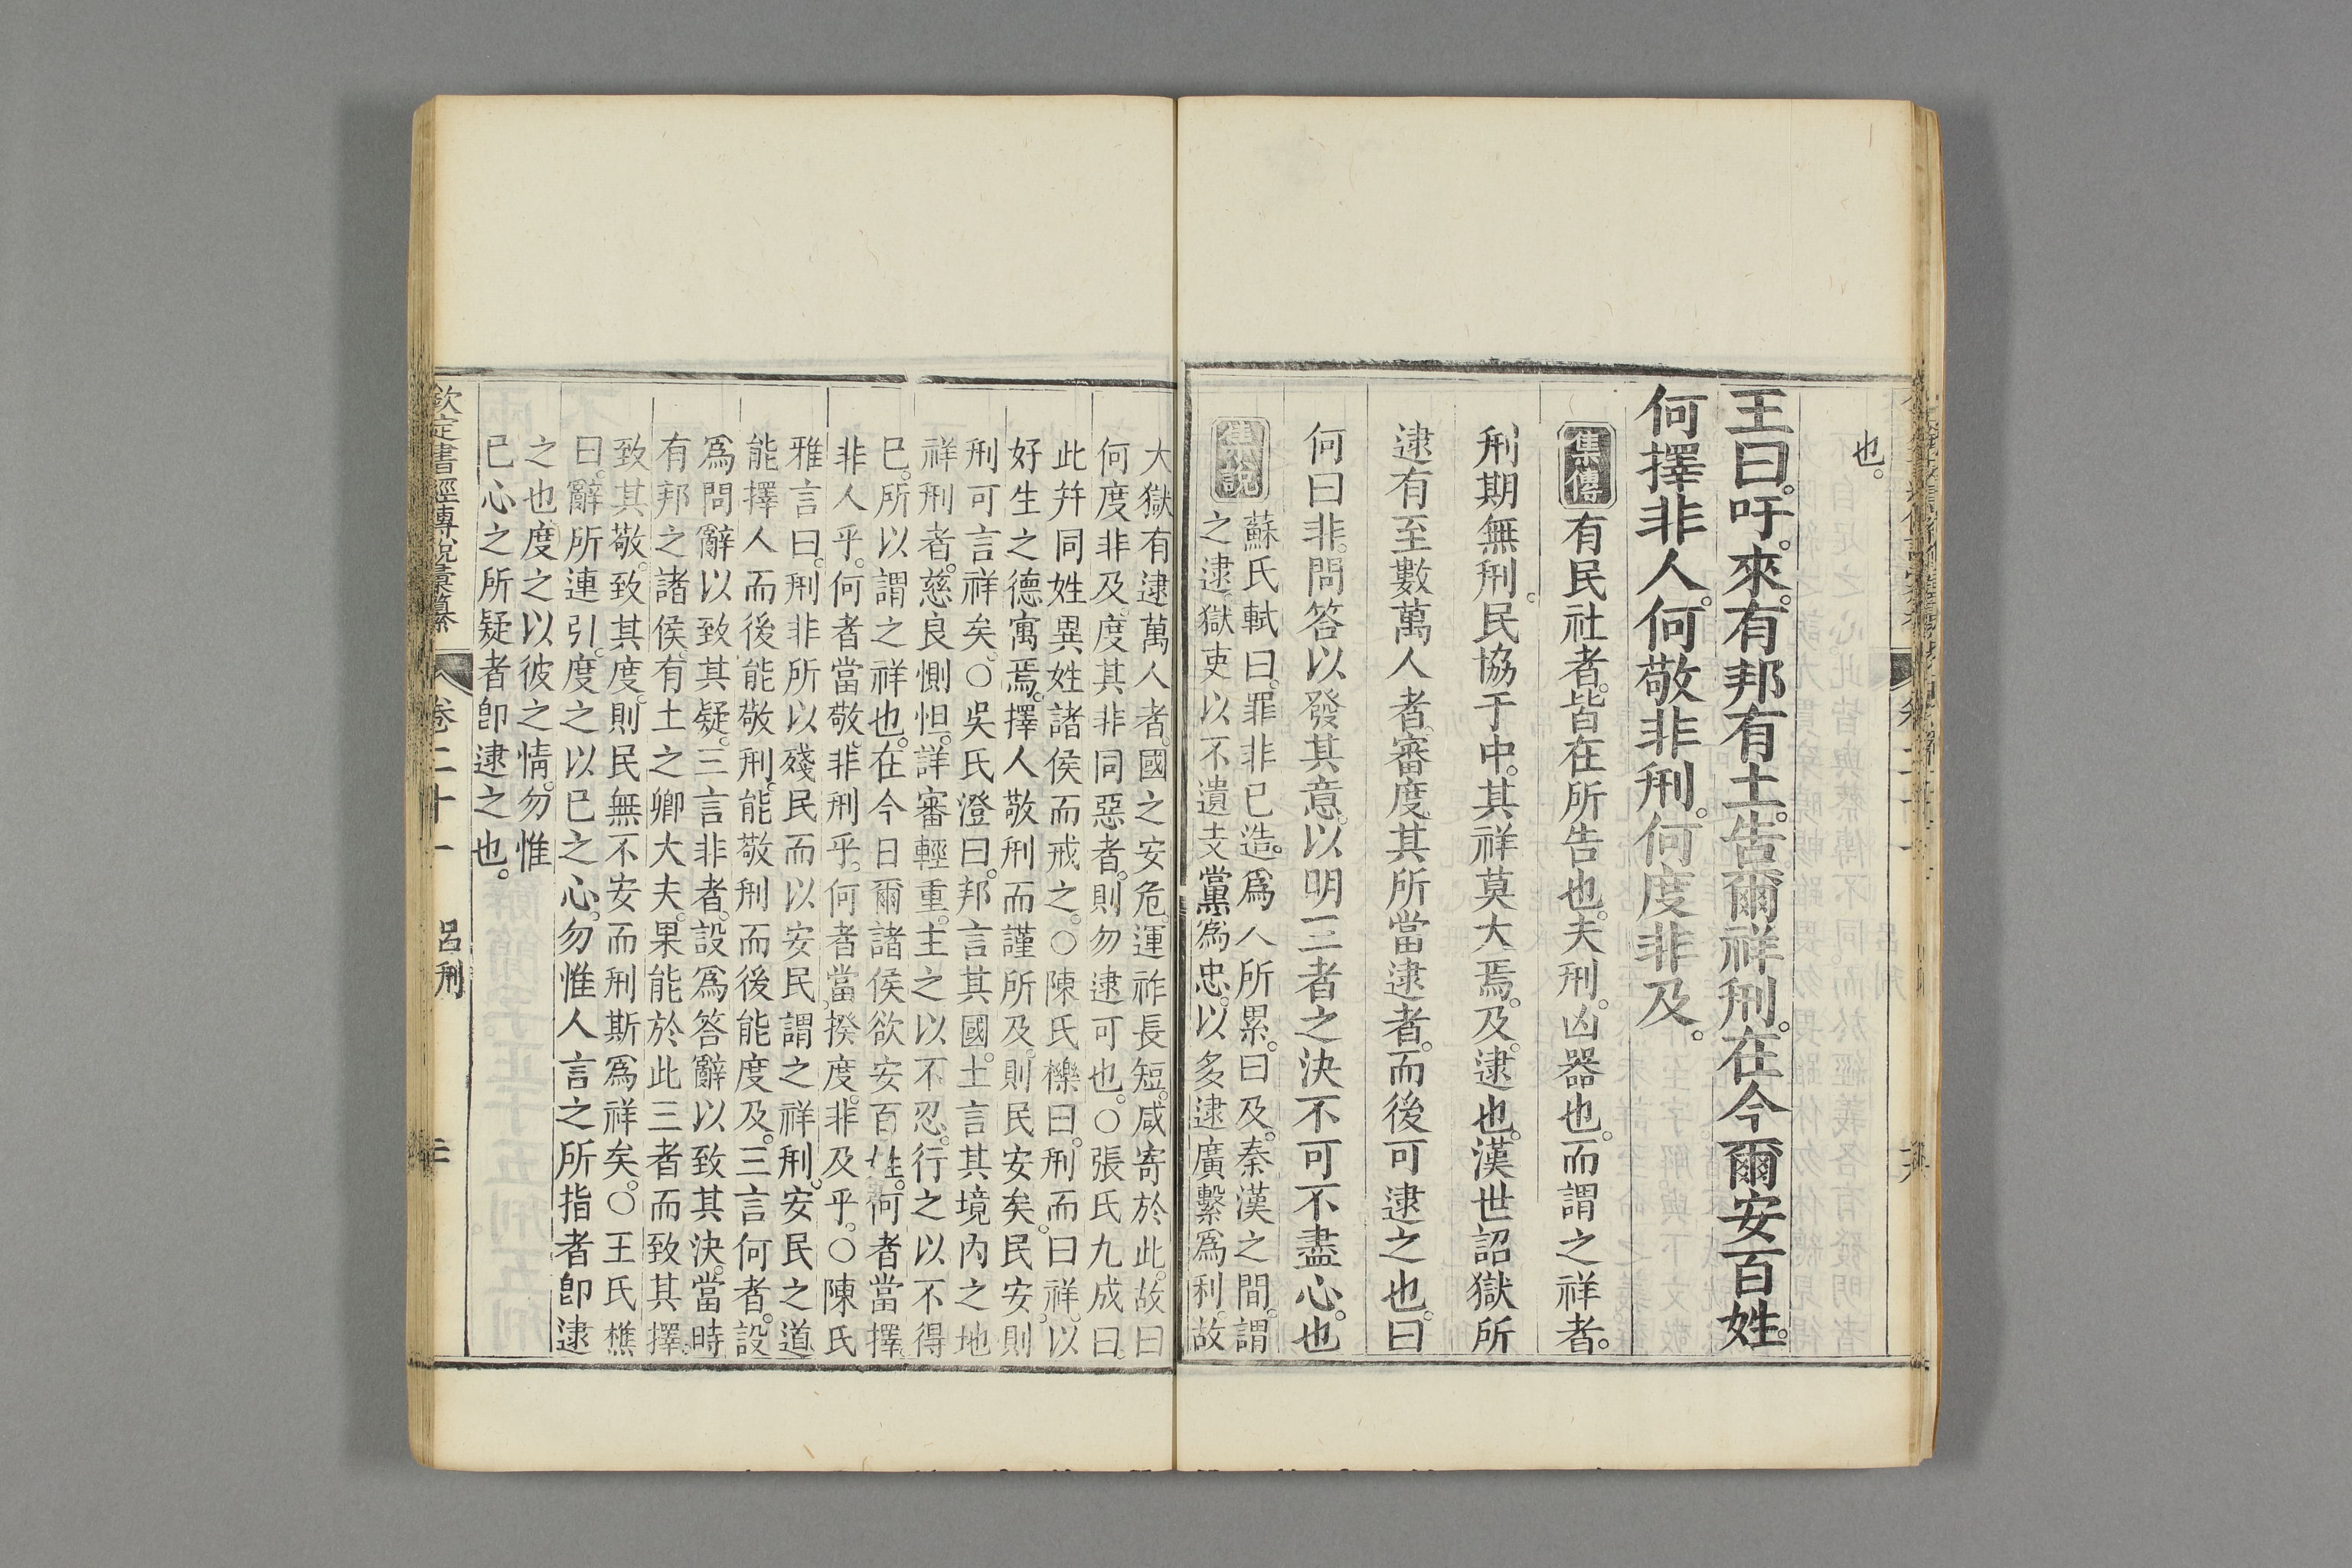 也。
王曰。吁。來。有邦有土。告爾祥刑。在今爾安百姓。
何擇非人。何敬非刑。何度非及。
集傳 有民社者。皆在所告也。夫刑。凶器也。而謂之祥者。
刑期無刑。民協于中。其祥莫大焉。及。逮也。漢世詔獄所
逮有至數萬人者。審度其所當逮者。而後可逮之也。曰
何曰非。問答以發其意。以明三者之決不可不盡心也
集說 蘇氏軾曰。罪非已造。爲人所累。曰及。秦漢之間。謂
之逮。獄吏以不遺支黨爲忠。以多逮廣繫爲利。故
大獄有逮萬人者。國之安危。運祚長短。咸寄於此。故曰
何度非及。度其非同惡者。則勿逮可也。○張氏九成曰。
此幷同姓異姓諸侯而戒之。○陳氏櫟曰。刑而曰祥。以
好生之德寓焉。擇人敬刑而謹所及。則民安矣。民安。則
刑可言祥矣。○吳氏澄曰。邦言其國。土言其境內之地
祥刑者。慈良惻怛。詳審輕重。主之以不忍。行之以不得
已。所以謂之祥也。在今日爾諸侯欲安百姓。何者當擇。
非人乎。何者當敬。非刑乎。何者當揆度。非及乎。○陳氏
雅言曰。刑非所以殘民而以安民。謂之祥刑。安民之道
能擇人而後能敬刑。能敬刑而後能度及。三言何者。設
爲問辭以致其疑。三言非者。設爲答辭以致其決。當時
有邦之諸侯。有土之卿大夫。果能於此三者而致其擇。
致其敬。致其度。則民無不安而刑斯爲祥矣。○王氏樵
曰。辭所連引。度之以已之心。勿惟人言之所指者卽逮
之也。度之以彼之情。勿惟
已心之所疑者卽逮之也。
欽定書經傳說彙纂 卷二十一 呂刑